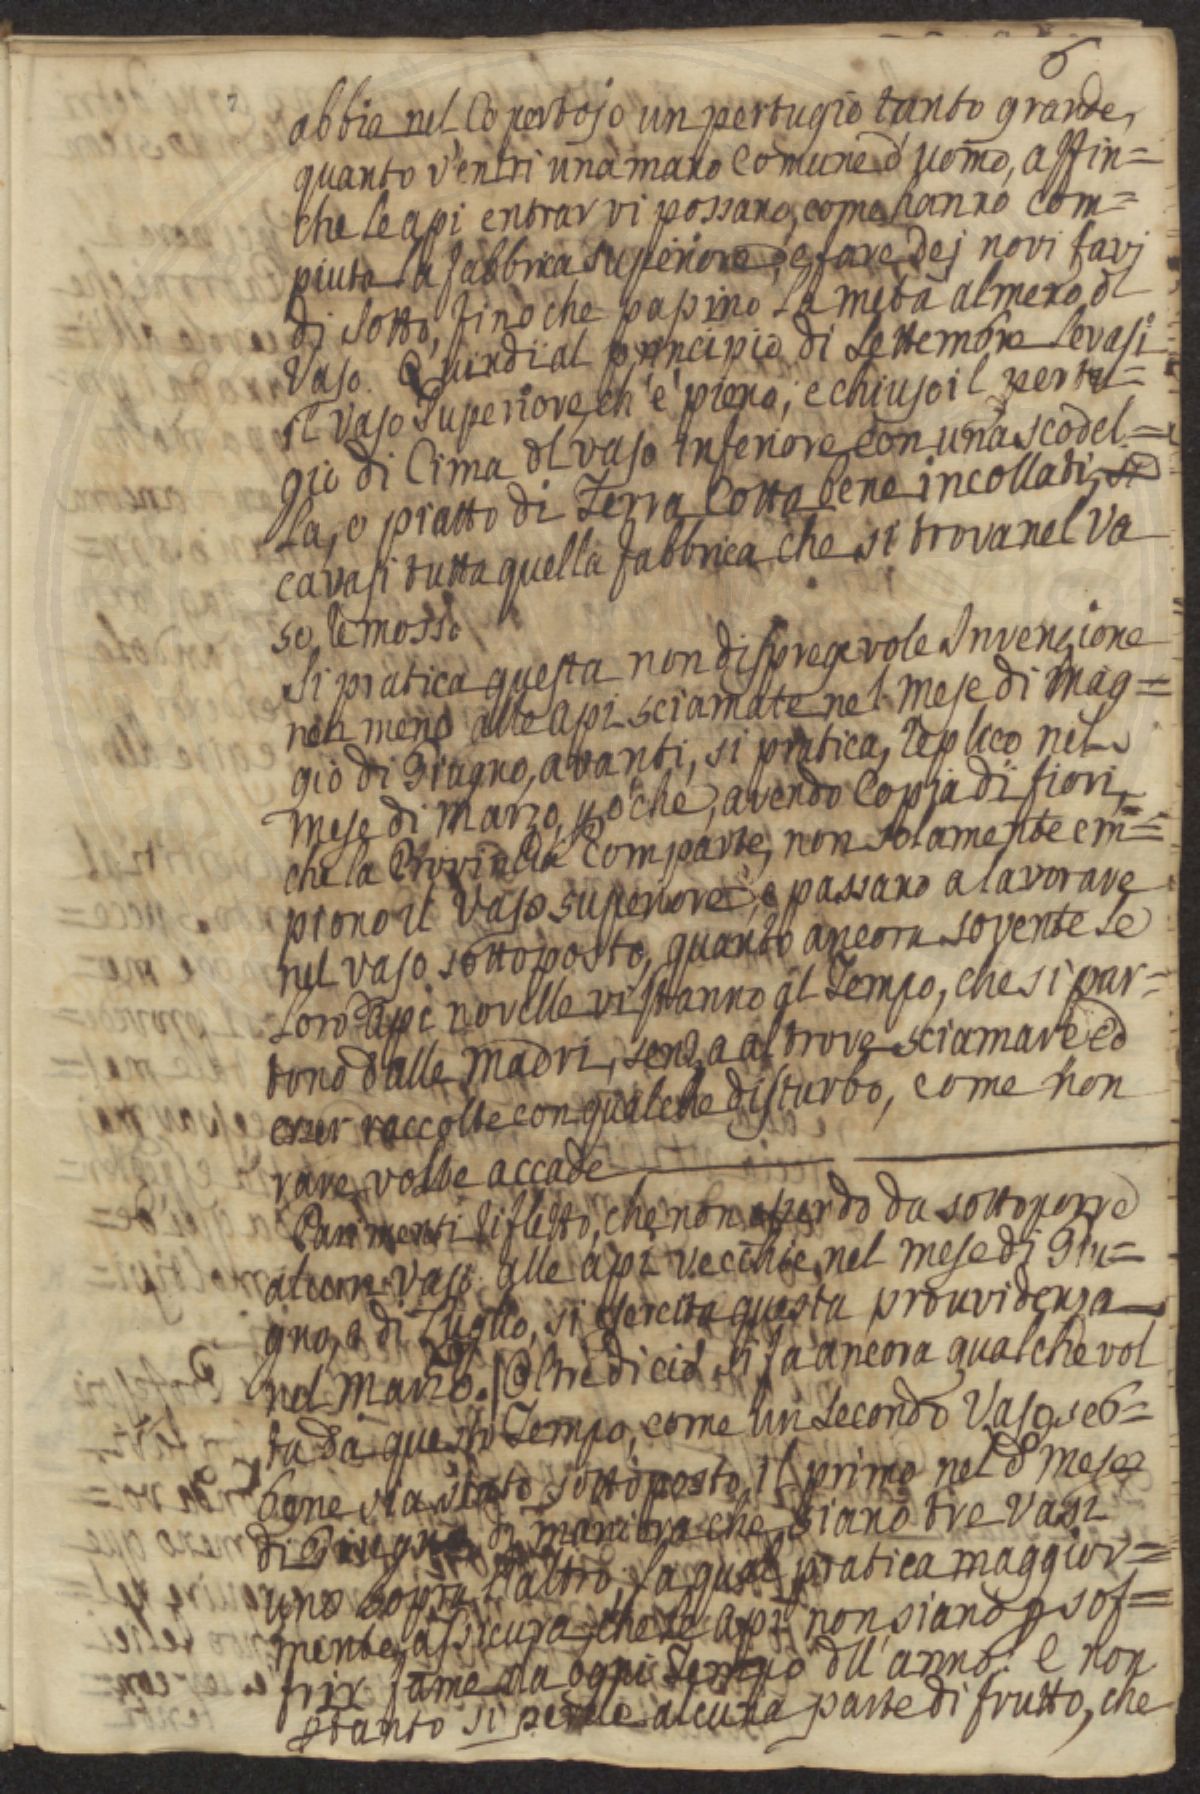 6
abbia nel Copertojo un pertugio tanto grande,
quanto v'entri una mano Comune d'uomo, affin=
che le api entrar vi possano, come hanno com=
piuta la fabbrica superiore, e fare dej novi favj
di sotto, fino che papino la metà almeno dl
Vaso. Quindi al principio di Settembre levasi
il vaso superiore, ch'è pieno, e chiuso il pertu=
gio di Cima dl vaso inferiore con una scodel=
la, o piatto di Terra Cotta bene incollati,
cavasi tutta quella fabbrica che si trova nel Va
so remosso
Si pratica questa non dispregevole Invenzione
non meno alle api sciamate nel mese di Mag=
gio di Giugno, avanti, si pratica, replico nel
mese di Marzo, poiche, avendo Copja di fiori,
che la Provincia Comparte, non solamente em=
piono il Vaso superiore, e passano a lavorare
nel vaso sottoposto, quanto ancora sovente le
Loro api novelle vi stanno ql Tempo, che si par=
tono dalle Madri, senza altrove sciamare ed
esser raccolte con qualche disturbo, come non
rare volte accade
Parimenti rifletto, che non avendo da sottoporre
alcun Vaso alle api vecchie nel mese di Giu=
gno, o di Luglio, si esercita questa provvidenza
nel Marzo. Oltre di ciò si fa ancora qualche vol
ta da questo Tempo, come un secondo Vaso, seb=
bene sia stato sottoposto il primo nel d.º mese
di Giugno di maniera che siano tre Vasi
uno sopra l'altro, la qual pratica maggior=
mente assicura, che le api non siano p sof=
frir fame da ogni Tempo dll'anno, e non
ptanto si perde alcuna parte di frutto, che